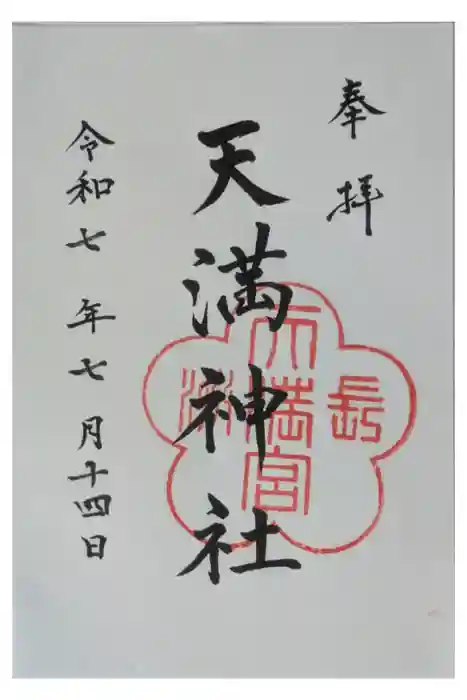 奉拝
天満神社
天満宮
長
令和七年七月十四日